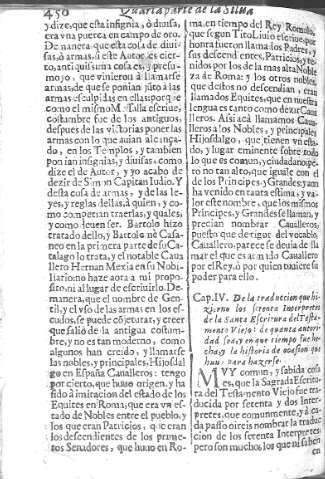 450 Quarta parte de la Silua
y dize, que esta insignia, ò diuisa,
era vna puerca en campo de oro.
De manera que esta cosa de diui-
sas, ò armas, â este Autor, es cier-
to, antiquissima cosa es, y presu-
mo jo, que vinieron â llamarse
armas, de que se ponian jũto â las
armas esculpidas en ellas: porque
como el mismo M. Tulia escriue,
costumbre fue de los antiguos,
despues de las victorias poner las
armas con lo que auian alcança-
do, en los Templos, y tambien
ponian insignias, y diuisas, como
dize el de Autor, y yo acabo de
dezir de Simon Capitan Iudio. Y
desta cosa de armas, y de las le-
yes, y reglas dellas, â quien, y co-
mo competian traerlas, y quales,
y como deuen ser. Bartolo hizo
tratado dello, y Bartolo mè Casa-
neo en la primera parte de su Ca-
talago lo trata, y el notable Caua
llero Hernan Mexia en su Nobi-
liario no haze aora â mi propo-
sito, ni al lugar de escriuirlo. De-
manera, que el nombre de Gen-
til, y el vso de las armas en los es-
cudos, se puede cõjeturar, y creer
que saliò de la antigua costum-
bre, y no es tan moderno, como
algunos han creido, y llamarse
las nobles, y principales. Hijosdal
go en España Caualleros: tengo
por cierto, que huuo origen, y ha
sido â imitacion del estado de los
Equites en Roma, que era vn es-
tado de Nobles entre el pueblo, y
los que eran Patricios, que eran
los descendientes de los prime-
tos Senadores, que huuo en Ro-
ma, en tiempo del Rey Romulo,
que segun Tito Liuio escriue, por
honra fueron llamados Padres, y
sus descendientes, Patricios, y te-
nidos por los de la mas alta Noble
za de Roma: y los otros nobles,
que destos no descendian, eran
llamados Equites, que en nuestra
lengua es tanto como dezir Caua
lleros. Assi acà llamamos Caua-
lleros a los Nobles, y principales
Hijosdalgo, que tienen vn esta-
do, y lugar eminente sobre todo
lo que es comun, y ciudadano: pe-
ro no tan alto, que iguale con el
de los Principes, y Grandes, y aun
ha venido en tanta estima, y va-
lor este nombre, que los mismos
Principes, y Grandes se llaman, y
precian nombrar Caualleros,
puesto que de rigor del vocablo
Cauallero, parece se deuia de lla
mar el que es armado Cauallero
por el Rey, ò por quien tuuiere su
poder para ello.
Cap. IV. De la traduccion que hi-
zieron los setenta Interpretes
de la Santa Escritura del Testa-
mento Viejo: de quanta autori-
dad sea, y en que tiempo fue he-
cha, y la historia de ocasion que
huuo para hazerse.
MVY comun, y sabida cosa
es, que la Sagrada Escritu-
ra del Testamento Viejo fue tra-
ducida por setenta y dos Inter-
pretes, que comunmente, y â ca-
da passo oireis nombrar la traduc
cion de los setenta Interpretes:
pero son muchos los que ni saben
en